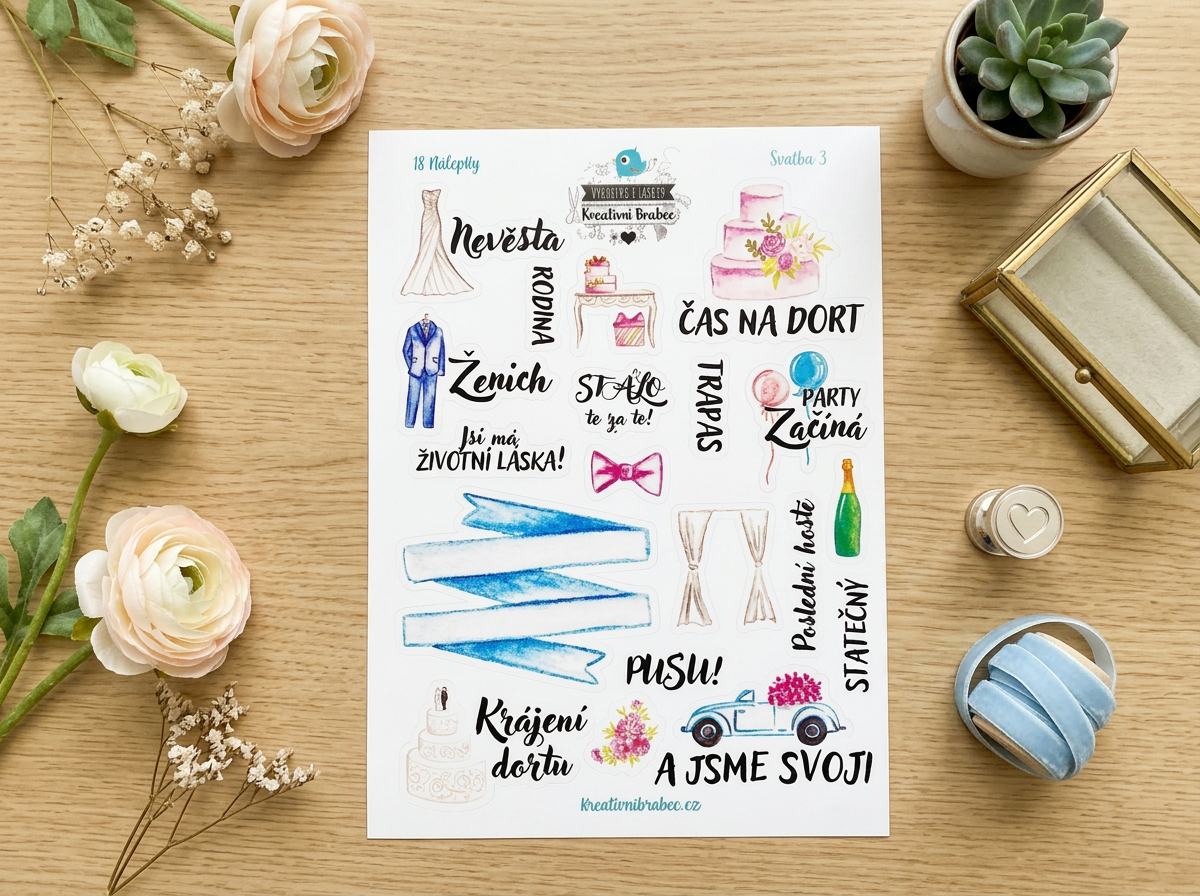 18 Nálepky
Svatba 3
Kreativní Brabec
Nevěsta
RODINA
ČAS NA DORT
Ženich
STALO
te za te!
TRAPAS
PARTY
Začíná
Jsi má
ŽIVOTNÍ LÁSKA!
Poslední hosté
STATEČNÝ
PUSU!
Krájení
dortu
A JSME SVOJI
kreativnibrabec.cz